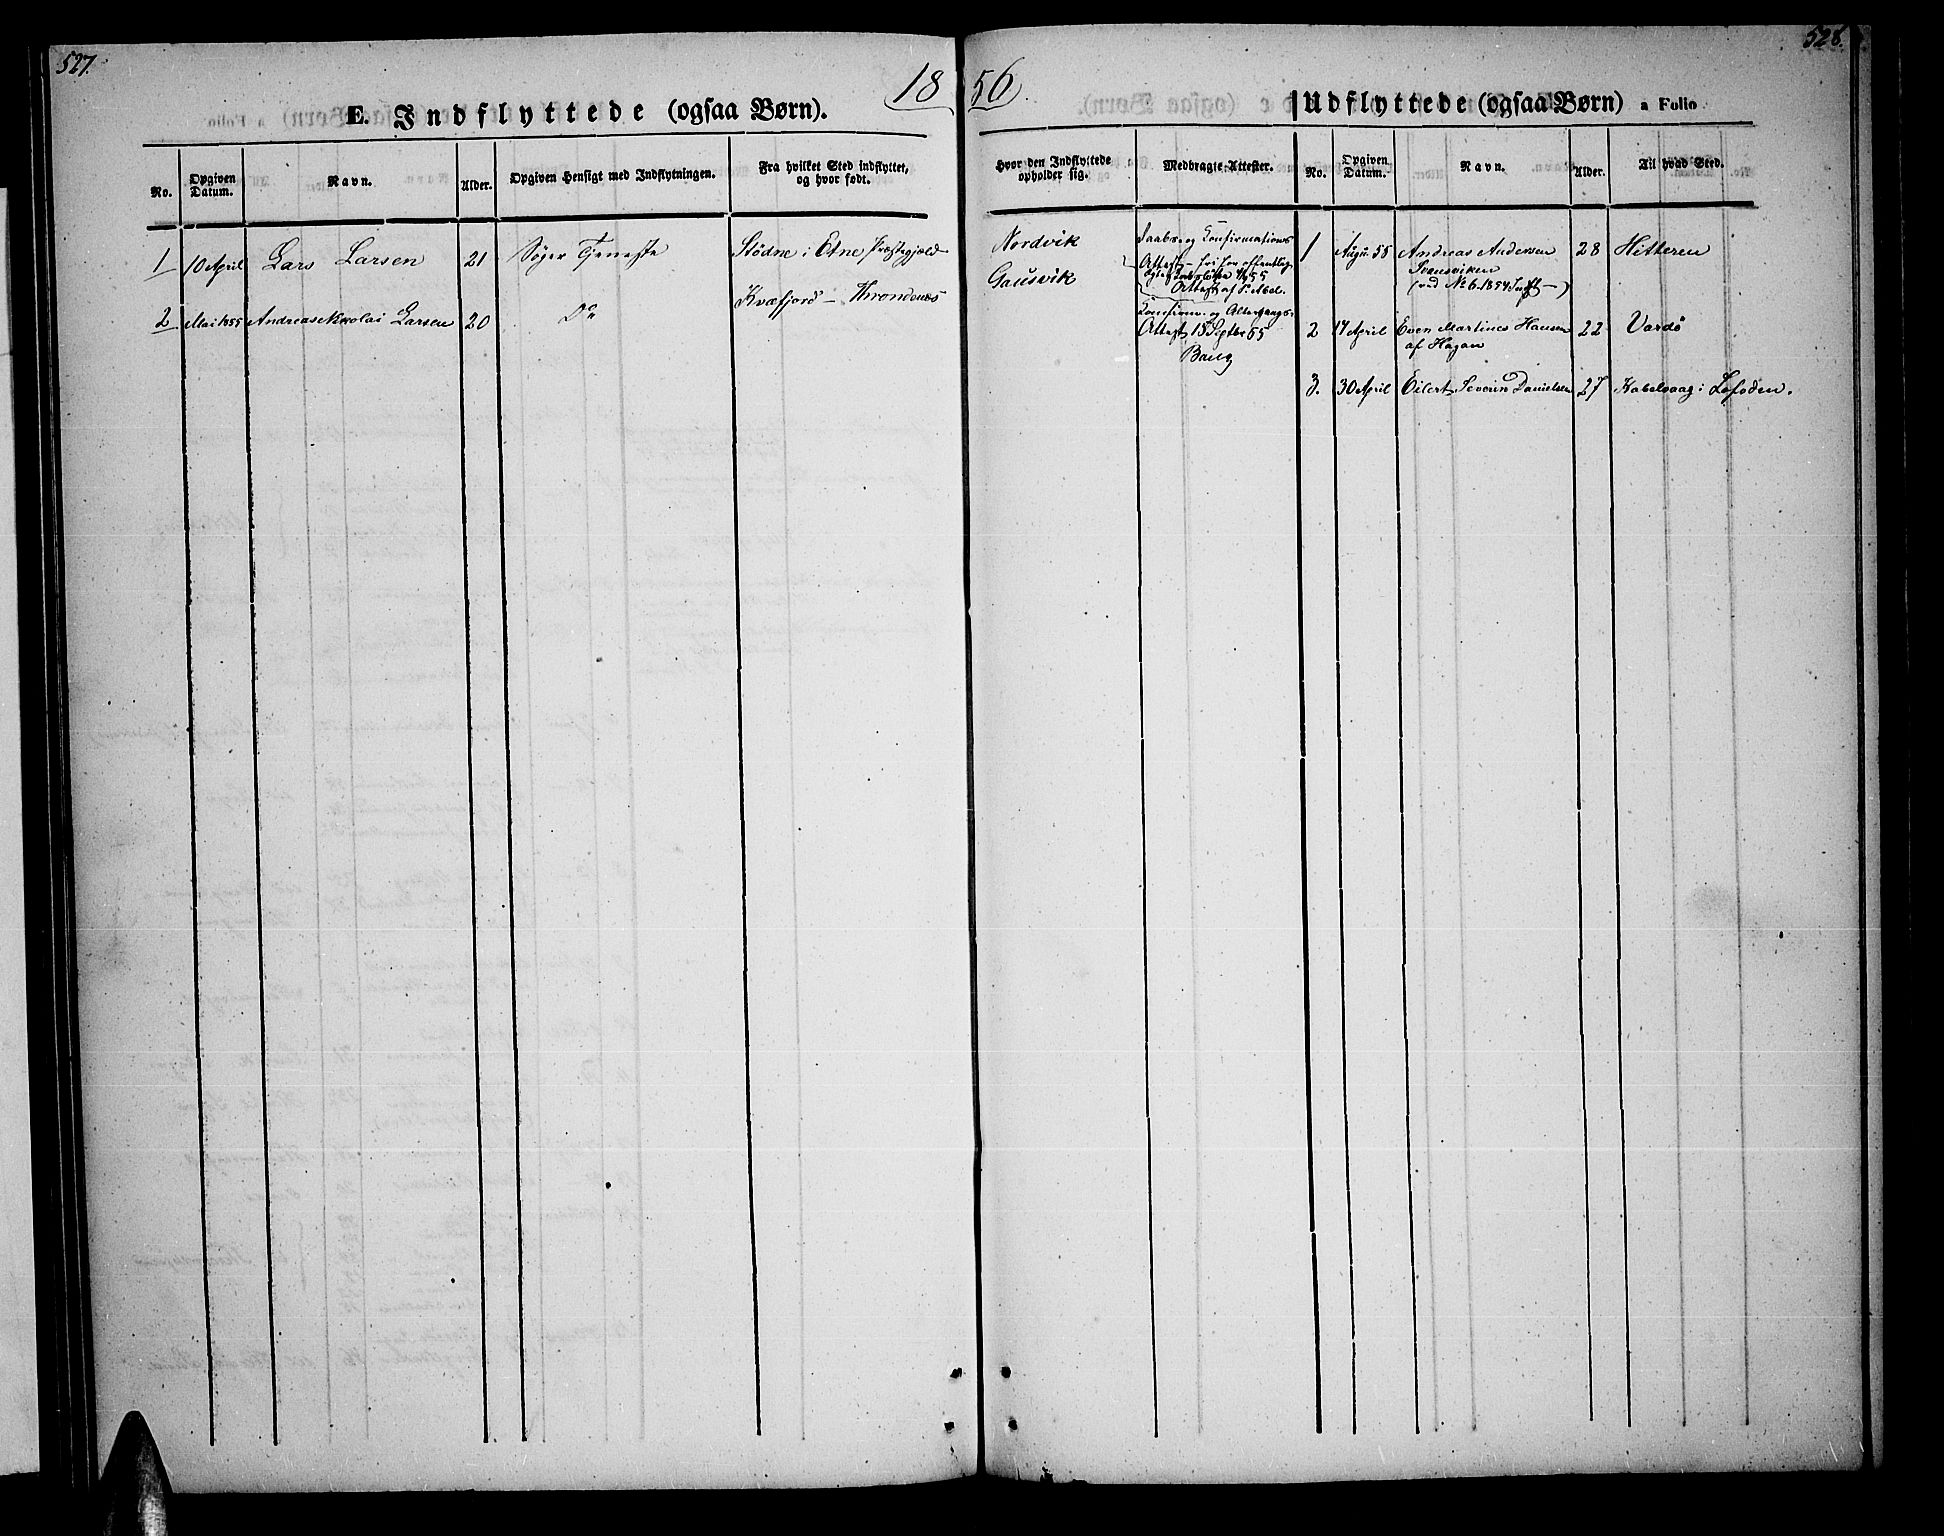 527.
528.
1856.
E. Indflyttede (ogsaa Børn).
No.
Opgiven Datum.
Navn.
Alder.
Opgiven Hensigt med Indflytningen.
Fra hvilket Sted indflyttet, og hvor født.
Hvor den Indflyttede opholder sig.
Medbragte Attester.
1 10 April Lars Larsen 21 Søger Tjeneste Stödne i Etne Præstegjæld Nordvik
Daabs og Konfirmations
Attest - fri for offentlig
Attest af P. Abel.
2 Mai 1855 Andreas Nikolai Larsen 20 Do Kvæfjord - Throndenæs Gausvik
Konfirm. og Altergangs-
Attest 15 Septbr 55
Udflyttede (ogsaa Børn) a Folio
No.
Opgiven Datum.
Navn.
Alder.
Til hvad Sted.
1 Augu. 55 Andreas Andersen 28 Hitteren
Svansviken
(ved No 6. 1854 Indft -)
2 14 April Even Martines Hansen 22 Vardö
af Hagan
3. 30 April Eilert Severin Danielsen 27 Kabelvaag i Lofoden.